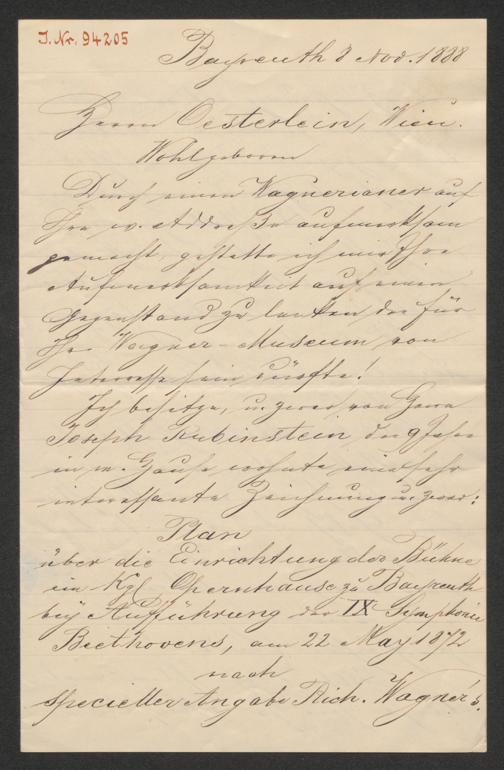 J. Nr. 94205
Bayreuth 8 Nov. 1888
Herrn Oesterlein, Wien.
Wohlgeboren
Durch einen Wagnerianer auf
Ihre w. Addreße aufmerksam
gemacht, gestatte ich mir Ihre
Aufmerksamkeit auf einen
Gegenstand zu lenken, der für
Ihr Wagner-Museum von
Interesse sein dürfte!
Ich besitze, u. zwar von Herrn
Joseph Rubinstein der 9 Jahre
in m. Hause wohnte, eine sehr
interessante Zeichnung u. zwar:
Plan
über die Einrichtung der Bühne
im Kgl. Opernhause zu Bayreuth
bey Aufführung der IX. Symphonie
Beethovens, am 22 May 1872
nach
specieller Angabe Rich. Wagner's.